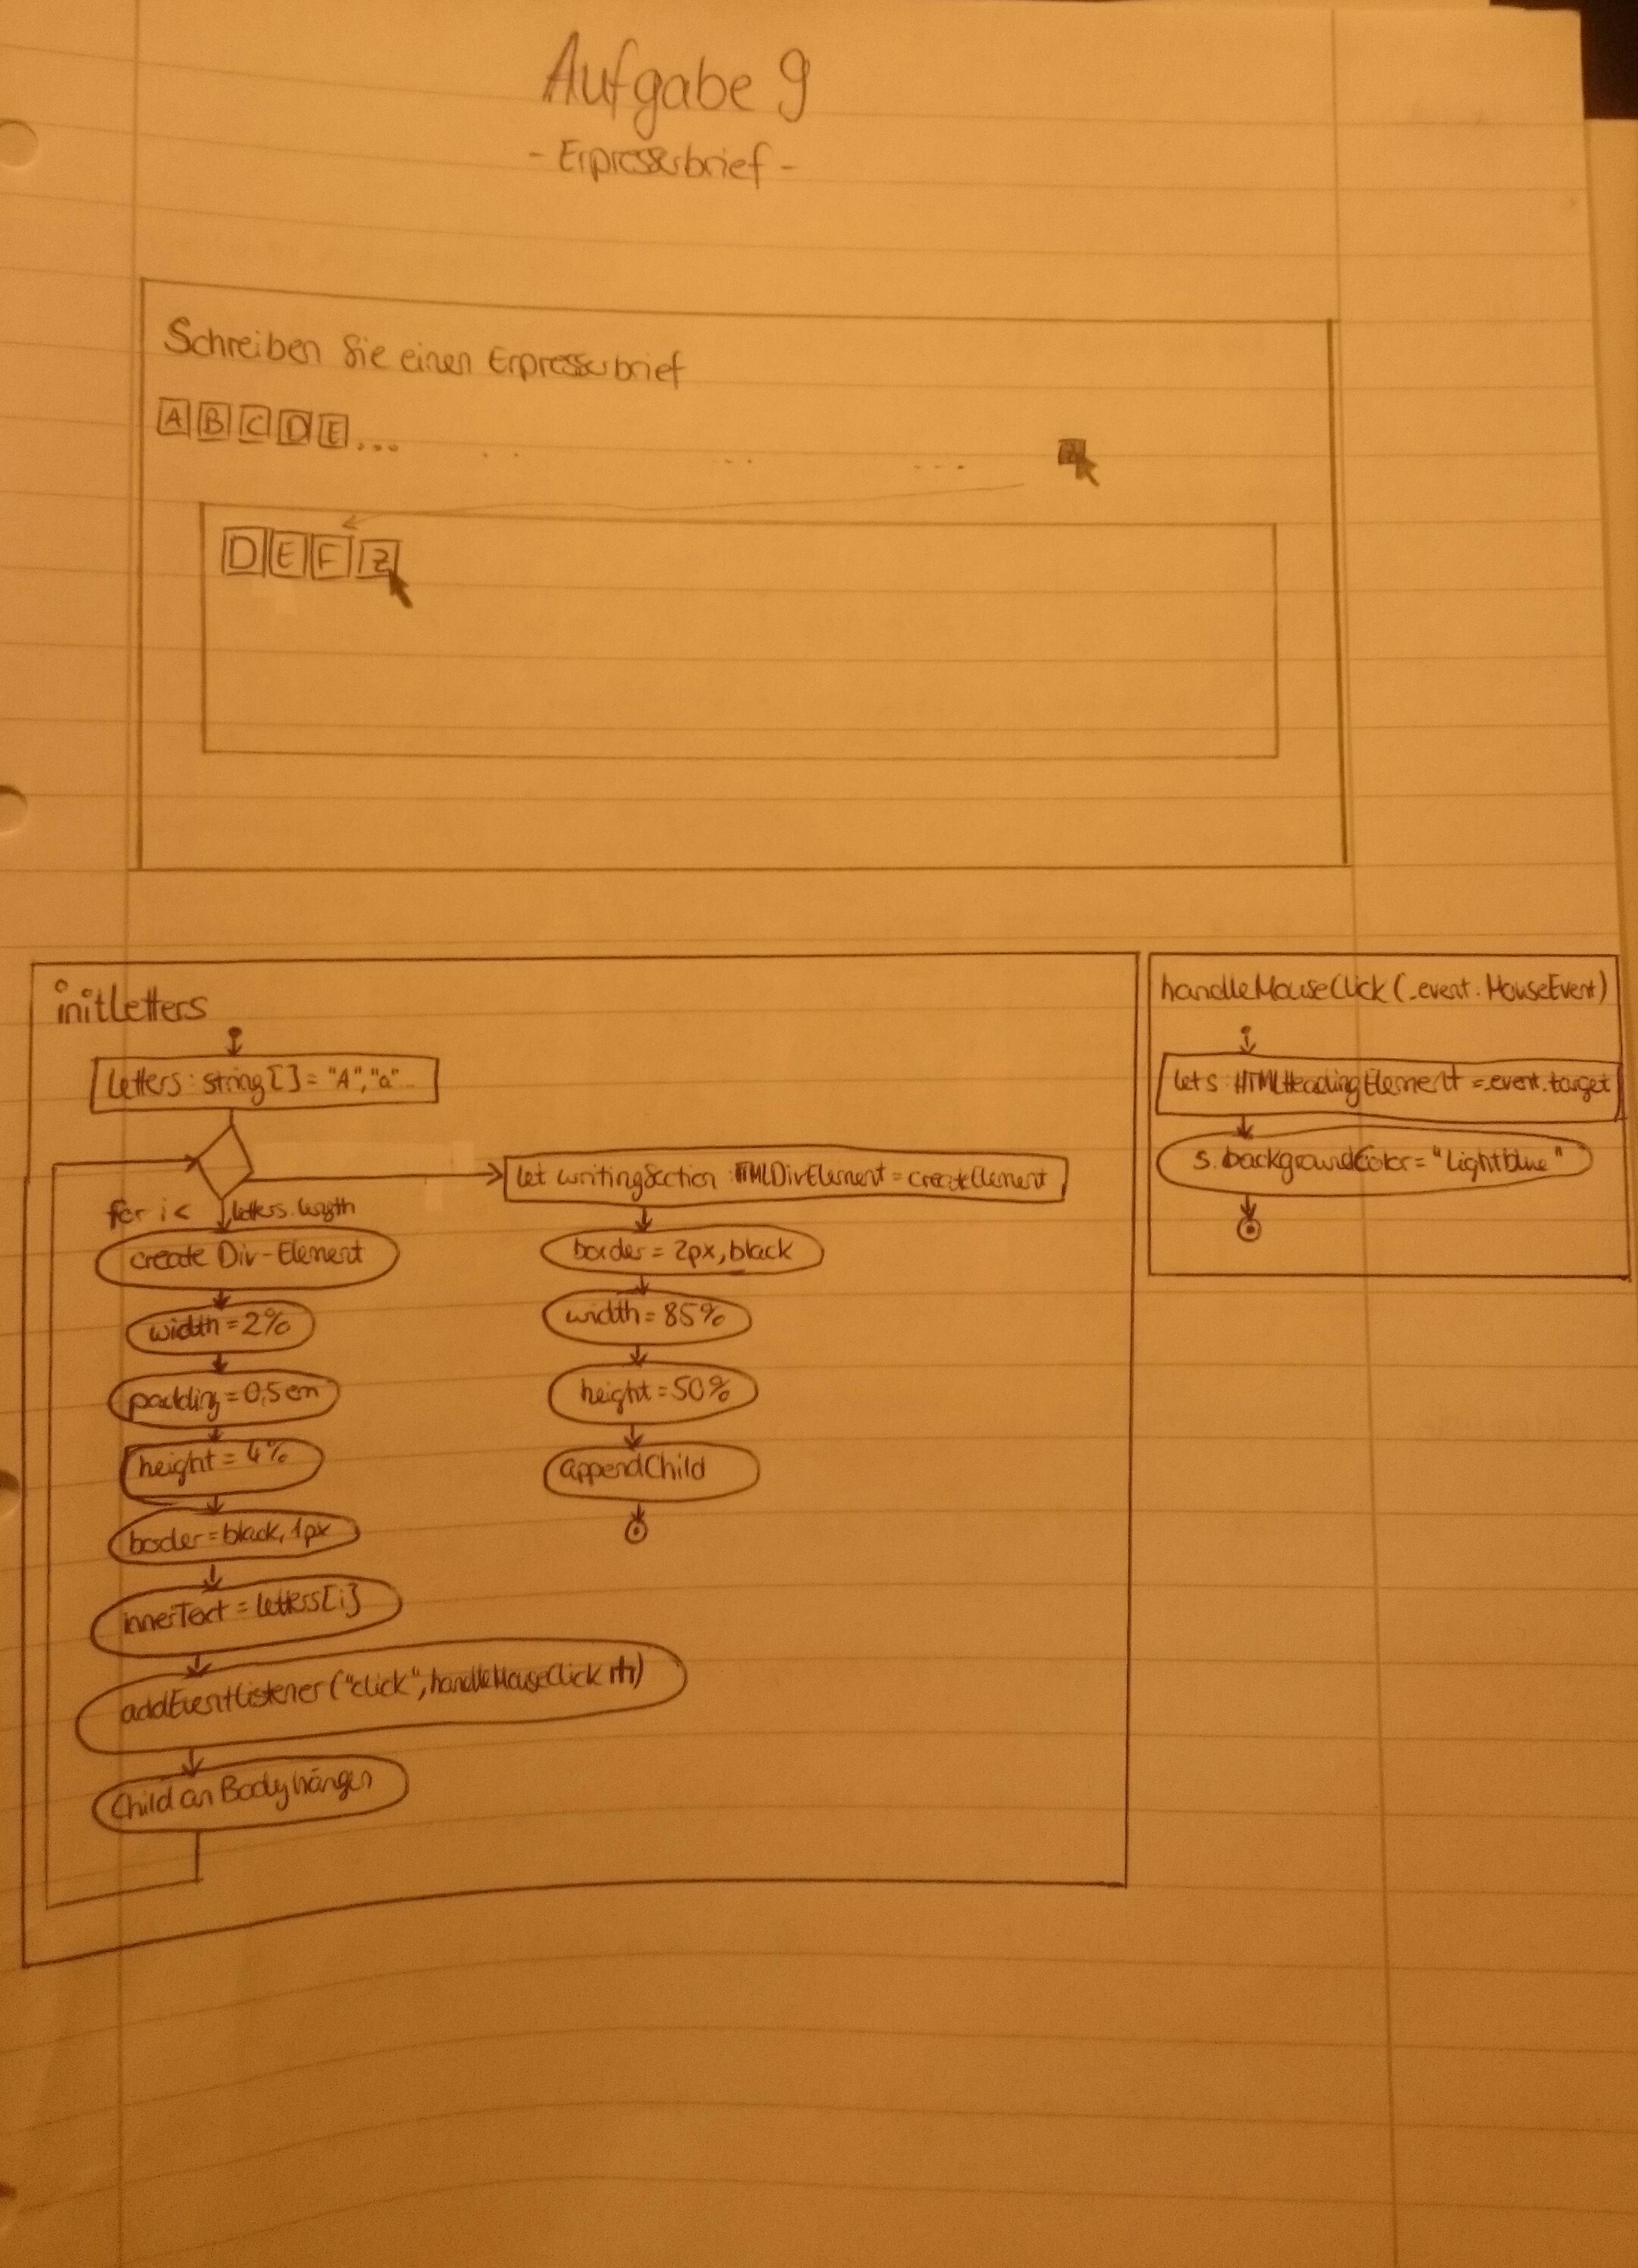 Aufgabe 9
- Erpresserbrief -
Schreiben Sie einen Erpresserbrief
A B C D E ...
Z
D E F Z
initLetters
letters: string[] = "A", "a"...
for i < letters.length
create Div-Element
width = 2%
padding = 0,5em
height = 4%
border = black, 1px
innerText = letters[i]
addEventListener("click", handleMouseClick)
Child an Body hängen
let writingSection: HTMLDivElement = createElement
border = 2px, black
width = 85%
height = 50%
appendChild
handleMouseClick (_event: MouseEvent)
let s: HTMLHeadingElement = _event.target
s.backgroundColor = "Lightblue"